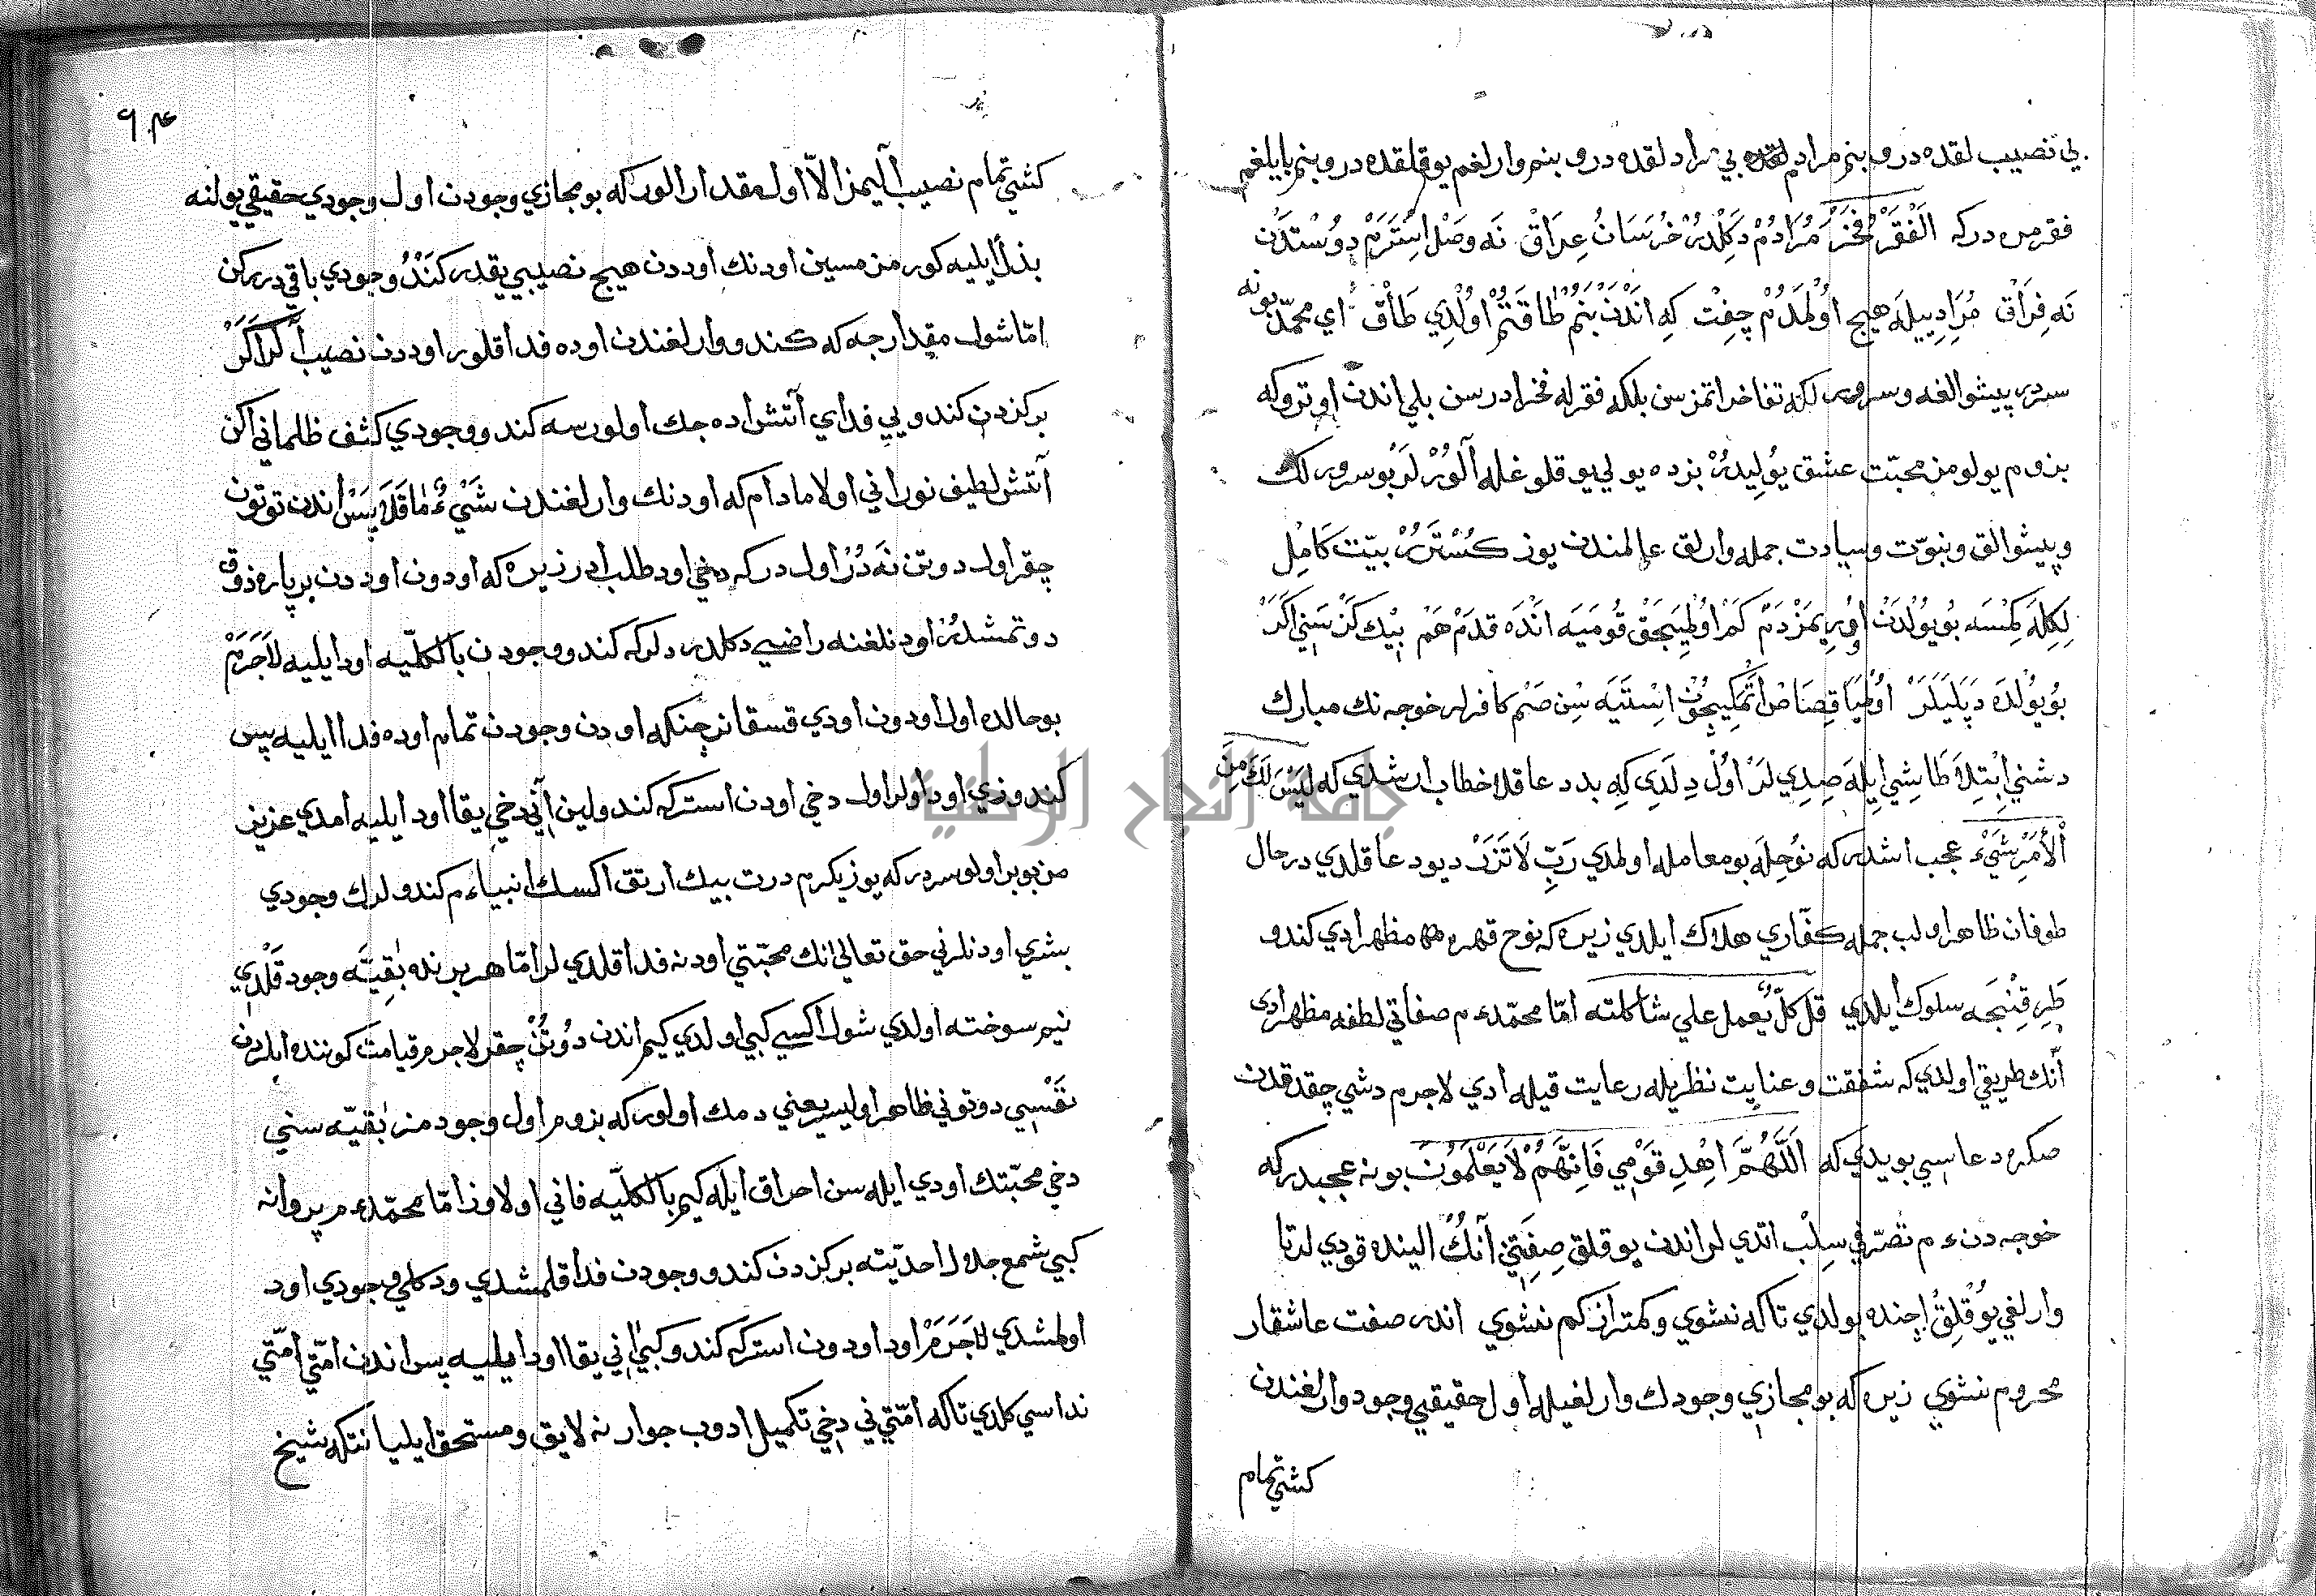 بي نصيب لقده در و بنم مرادم بي مراد لقده در و بنم وارلغم يوقلقده در و بنم بايلغم
فقرمده در كه الفقر فخر مُرَادُمْ دَكِلْدُرْ خُرَسَانُ عِرَاقْ نَه وَصْل اِسْتَرَمْ دُوسْتدَنْ
نَه فِرَاقْ مُرَادِ بيله هيچ اوُلمَدُمْ چِفْت كِه اَنْدَنْ بَنُمْ طَاقَتُمْ اوُلْدِي طَاق اي محمد بو نه
سردر پيشوالغه و سرورلكه تفاخر اتمزسن بلكه فقرله فخر ادرسن بلي اندن اوترو كه
بزوم يولومز محبّت عشق يوُلِيدُرْ بزده يولي يوقلوغله آلُورْلَرْ بو سرورلك
و پيشوالق و نبوّت و سيادت جمله وارلق عالمندن يوز كُسْتَرُرْ بيت كَامِل
لِكِلَه كِمْسَه بُو يوُلْدَنْ اوُرِيمَزْ دَمْ كَمْ اوُلميجَقْ قُومَيَه اَنْدَه قدَمْ هَمْ بِيْك كَزْ سَنِي اَكَرْ
بُو يُولْدَه دَپَلَيَلَرْ اوُلميَا قِصَاصْ اتمكيچون اسْتَيَه سِن صَنَم كافرلر خوجه نك مبارك
دشني اِبْتِلَا طَاشِي اِيلَه صِدِي لَرْ اوُل دِلَدِي كِه بد دعا قلا خطاب ارشدي كه لَيْسَ لَكَ مِنَ
الْاَمْرِ شَيْءٌ عجب اشدر كه نوُحِلَه بو معامله اولمدي رَبِّ لَا تَذَرْ ديو دعا قلدي در حال
طوفان ظاهر اولب جمله كفّاري هلاك ايلدي زيره كه نوح قهره مظهر ادي كندو
طَرِيقِنْجَه سلوك ايلدي قل كلّ يعمل علي شاكلته امّا محمّد عم صفاتي لطفه مظهر ادي
آنك طريقي اولدي كه شفقت و عنايت نظريله رعايت قيله ادي لاجرم دشي چقدقدن
صكره دعاسي بويدي كه اَللَّهُمَّ اهْدِ قَوْمِي فَاِنَّهُمْ لَا يَعْلَمُونَ بو نه عجبدر كه
خوجه دن عم تصرّفي سِلب اتدي لر اندن يوقلق صِفَتِنِ آنكْ الينده قودي لر تا
وارلغي يوُقْلِقْ اچنده بولدي تا كه نشوي و كمتر از كم نشوي اندر صفت عاشقان
محروم نشوي زيره كه بو مجازي وجودك وارلغيله اول حقيقي وجود وارلغندن
كشي تمام
كشي تمام نصيب آليمز الاّ اول مقدار الور كه بو مجازي وجودن اول وجودي حقيقي يولنه
بذل ايليه كورمزمسين اودنك اوددن هيچ نصيبي يقدر كَنْدُو وجودي باقي دركن
امّا شول مقدار جه كه كندو وارلغندن اوده فدا قلور اوددن نصيب آلر اَكَرْ
بر كزدن كندويي فداي آتش اده جك اولورسه كندو وجودي كثف ظلماني اكن
آتش لطيف نوراني اولا مادام كه اودنك وارلغندن شَيْءٌ مَا قَلَا پَسْ اندن توتون
چقر اول دوتن نَه دُرْ اول در كه دخي اود طلب ادر زيره كه اودون اوددن بر پاره ذوق
دوتمشدر اودنلغنه راضي دكلدر دلر كه كندو وجودن بالكلّيه اود ايليه لاَجَرَمْ
بو حالده اول اودون اودي قسقانر چنكه اودن وجودن تمام اوده فدا ايليه پس
كندوزي اود اولر اول دخي اودن استر كه كندولين آني دخي يقا اود ايليه امدي عزيز
من بو بر اولو سردر كه يوز يكرم درت بيك ارتق اكسك انبياء عم كندولرك وجودي
بشري اودنلرني حق تعالي انك محبّتي اودنه فدا قلدي لر امّا هر برنده بَقِيَّه وجود قَلْدِي
نيم سوخته اولدي شول اكسي كبي اولدي كيم اندن دُوتُنْ چقر لاجرم قيامت كوننده ايلردن
نَفْسِي دوتوني ظاهر اوليسر يعني دمك اولور كه بزوم اول وجودمز بقيّه سني
دخي محبّتك اودي ايله سن احراق ايله كيم بالكلّيه فاني اولاوز امّا محمّد عم پروانه
كبي شمع جلال احديّته بر كزدن كندو وجودن فدا قلمشدي و دكلي وجودي اود
اولمشدي لاَجَرَمْ اود اودون استر كه كندو كبي اني يقا اود ايليه پس اندن امّتي امّتي
نداسي كلدي تا كه امّتي ني دخي تكميل ادوب جوارنه لايق و مستحق ايليا نتكه شيخ